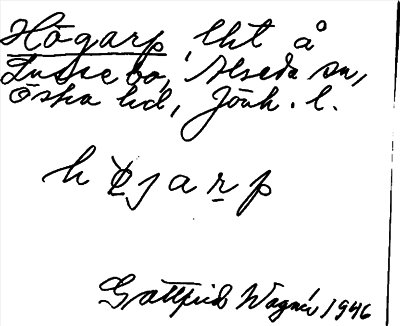 Högarp, lht å
Lussebo, Alseda sn,
Östra hd, Jönk. l.
h jarp
Gottfrid Wagnér 1946